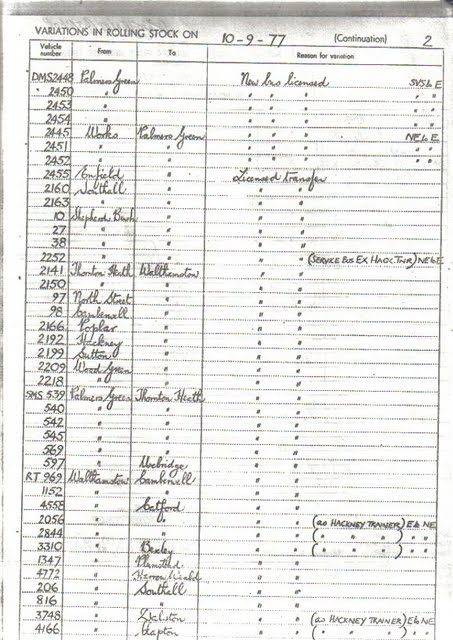 VARIATIONS IN ROLLING STOCK ON 10-9-77 (Continuation) 2
Vehicle number From To Reason for variation
DMS2448 Palmers Green New bus licensed SVS & E
2450 " " " " " "
2453 " " " " " "
2454 " " " " " "
2445 Works Palmers Green " " " NE & E
2451 " " " " " " "
2452 " " " " " " "
2455 Enfield " Licensed transfer
2160 Southall " " "
2163 " " " "
10 Shepherd Bush " " "
27 " " " "
38 " " " "
2252 " " " " (SERVICE BUS EX HACK. TNR) NE & E
2141 Thornton Heath Walthamstow " "
2150 " " " "
97 North Street " " "
98 Camberwell " " "
2166 Poplar " " "
2192 Hackney " " "
2199 Sutton " " "
2209 Wood Green " " "
2218 " " " "
SMS 539 Palmers Green Thornton Heath " "
540 " " " "
542 " " " "
545 " " " "
569 " " " "
597 " Uxbridge " "
RT 969 Walthamstow Camberwell " "
1152 " " " "
4558 " Catford " "
2056 " " " " (as HACKNEY TRAINER) E & NE
2844 " " " " ( " " " ) " "
3310 " Bexley " " ( " " " ) " "
1347 " Plumstead " "
4772 " Harrow Weald " "
206 " Southall " "
816 " " " "
3748 " Dalston " " (as HACKNEY TRAINER) E & NE
4166 " Clapton " " " " " " "